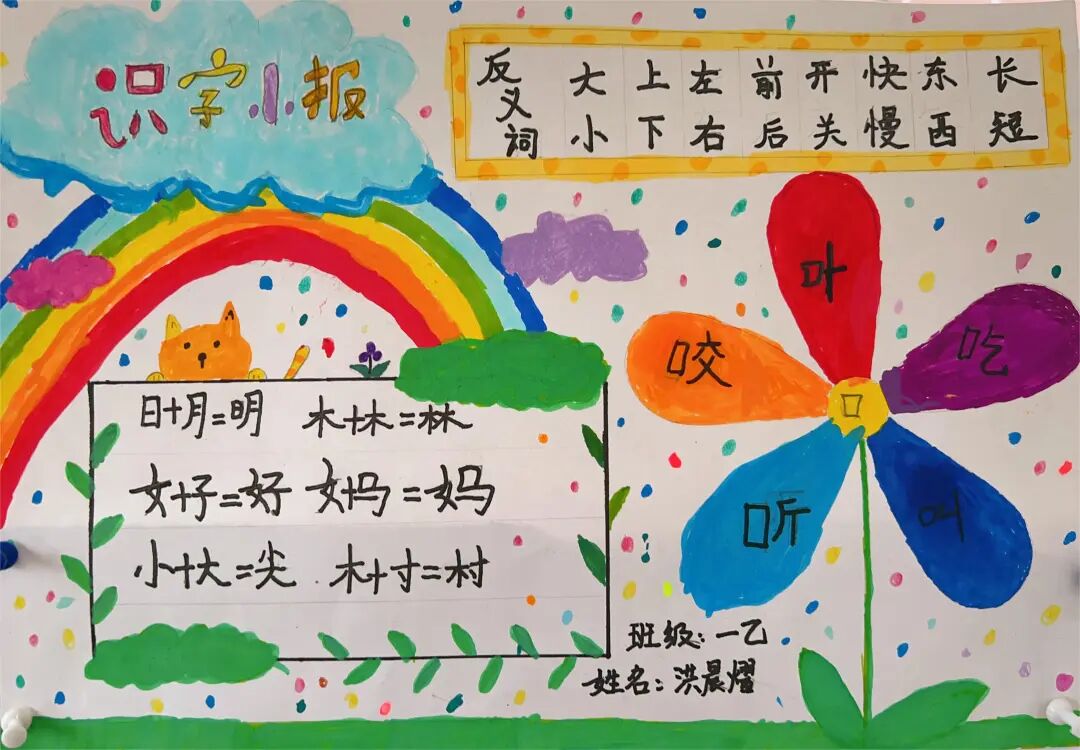 识字小报
反义词 大 上 左 前 开 快 东 长
小 下 右 后 关 慢 西 短
叶
咬 吃
口
听 叫
日+月=明 木+木=林
女+子=好 女+马=妈
小+大=尖 木+寸=村
班级：一乙
姓名：洪晨熠